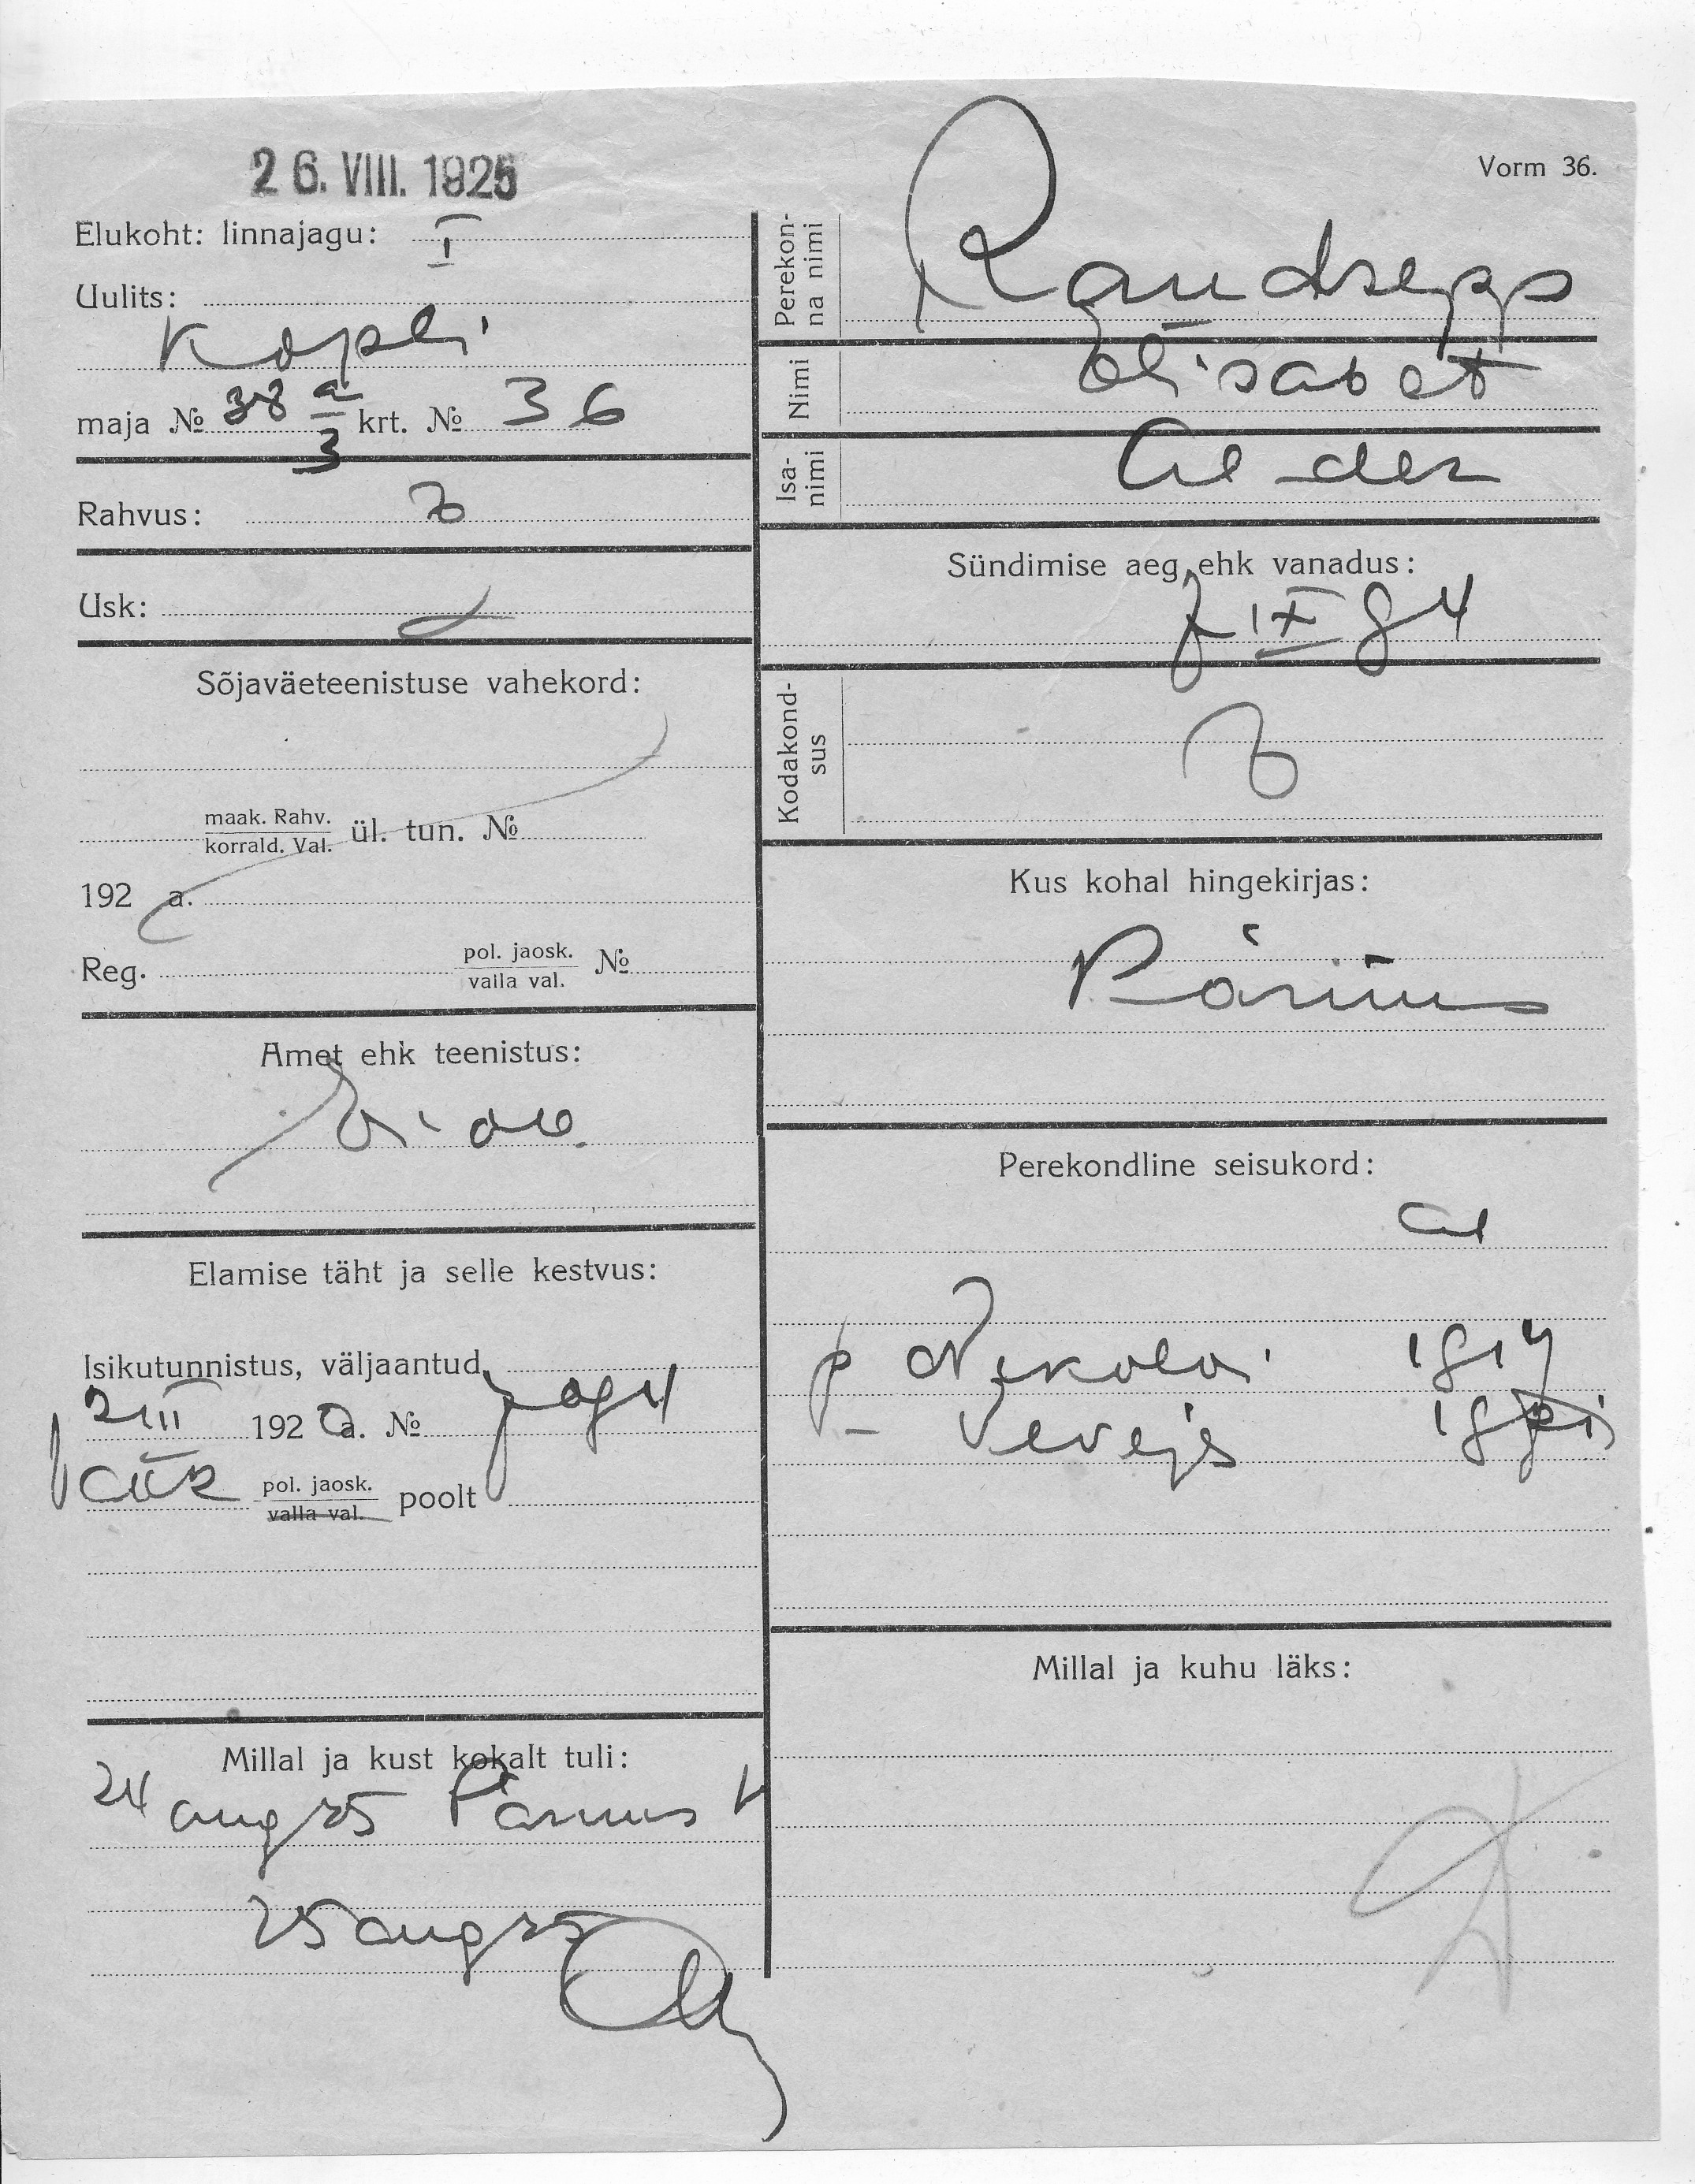 26. VIII. 1925
Vorm 36.
Elukoht: linnajagu: I
Uulits:
Kopli
maja № 38 a/3 krt. № 36
Rahvus:
Usk:
Sõjaväeteenistuse vahekord:
maak. Rahv.
korrald. Val. ül. tun. №
192 a.
Reg. pol. jaosk.
valla val. №
Amet ehk teenistus:
Elamise täht ja selle kestvus:
Isikutunnistus, väljaantud
2 III 1920 a. №
pol. jaosk.
valla val. poolt
Millal ja kust kokalt tuli:
24 aug 25 Pärnus
25 aug 25
Perekon-
na nimi
Randsepp
Nimi
Elisabet
Isa-
nimi
Al-der
Sündimise aeg ehk vanadus:
7 IX 84
Kodakond-
sus
Kus kohal hingekirjas:
Pärnus
Perekondline seisukord:
al
p Nikolai 1914
Millal ja kuhu läks: